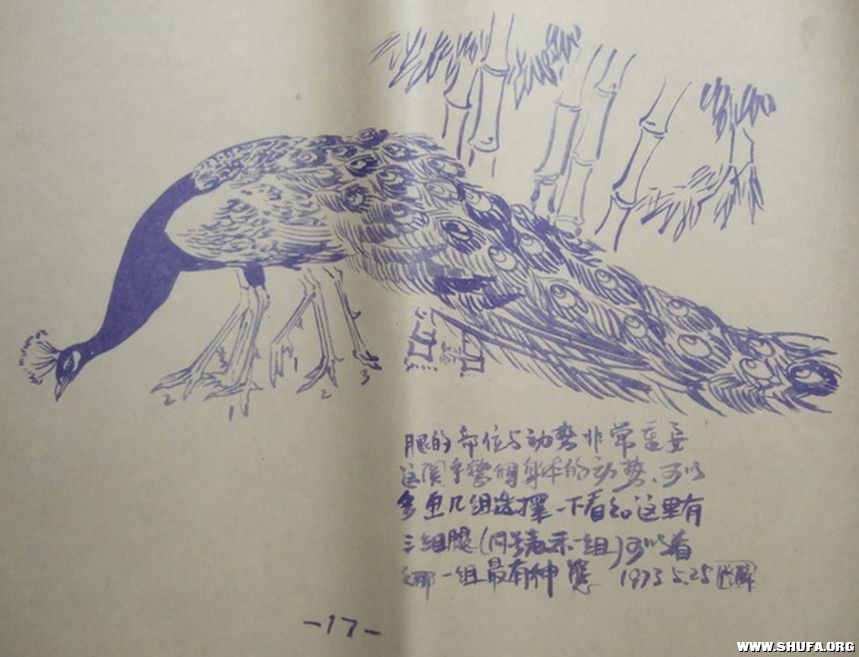 2
1
1
2
3
腿的部位与动势非常重要
这关乎整个身体的动势.可以
多画几组选择一下看如这里有
三组腿(同号表示一组)可以看
那一组最有神态 1973.5.25
-17-
WWW.SHUFA.ORG